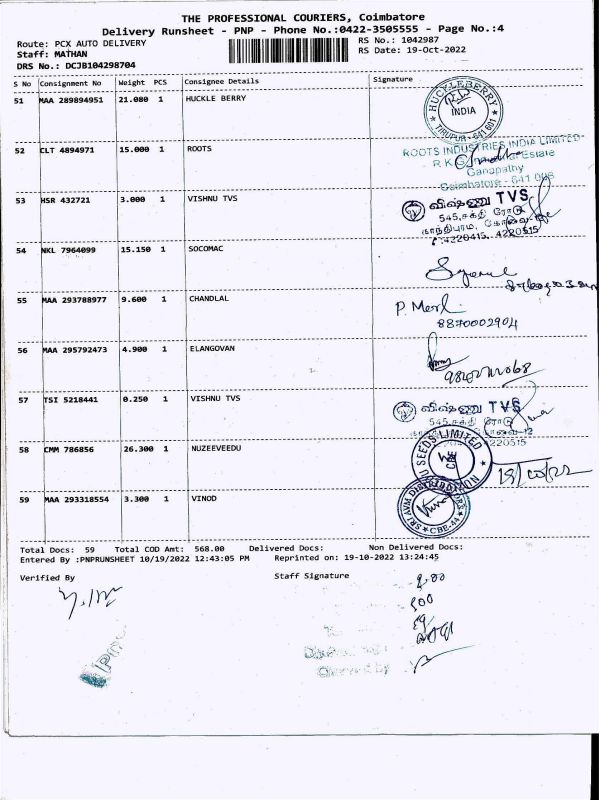 THE PROFESSIONAL COURIERS, Coimbatore
Delivery Runsheet - PNP - Phone No.:0422-3505555 - Page No.:4
Route: PCX AUTO DELIVERY RS No.: 1042987
Staff: MATHAN RS Date: 19-Oct-2022
DRS No.: DCJB104298704
S No Consignment No Weight PCS Consignee Details Signature
51 MAA 289894951 21.080 1 HUCKLE BERRY
HUCKLEBERRY
INDIA
TIRUPUR - 641 601
52 CLT 4894971 15.000 1 ROOTS
ROOTS INDUSTRIES INDIA LIMITED
R K G Industrial Estate
Ganapathy
Coimbatore - 641 006
53 HSR 432721 3.000 1 VISHNU TVS
விஷ்ணு TVS
545, சக்தி ரோடு
காந்திபுரம், கோவை-12
4220415, 4220515
54 NKL 7964099 15.150 1 SOCOMAC
55 MAA 293788977 9.600 1 CHANDLAL
8870002904
56 MAA 295792473 4.900 1 ELANGOVAN
57 TSI 5218441 0.250 1 VISHNU TVS
விஷ்ணு TVS
545, சக்தி ரோடு
58 CMM 786856 26.300 1 NUZEEVEEDU
U SEEDS LIMITED
CBE
59 MAA 293318554 3.300 1 VINOD
CBE-44
Total Docs: 59 Total COD Amt: 568.00 Delivered Docs: Non Delivered Docs:
Entered By :PNPRUNSHEET 10/19/2022 12:43:05 PM Reprinted on: 19-10-2022 13:24:45
Verified By Staff Signature